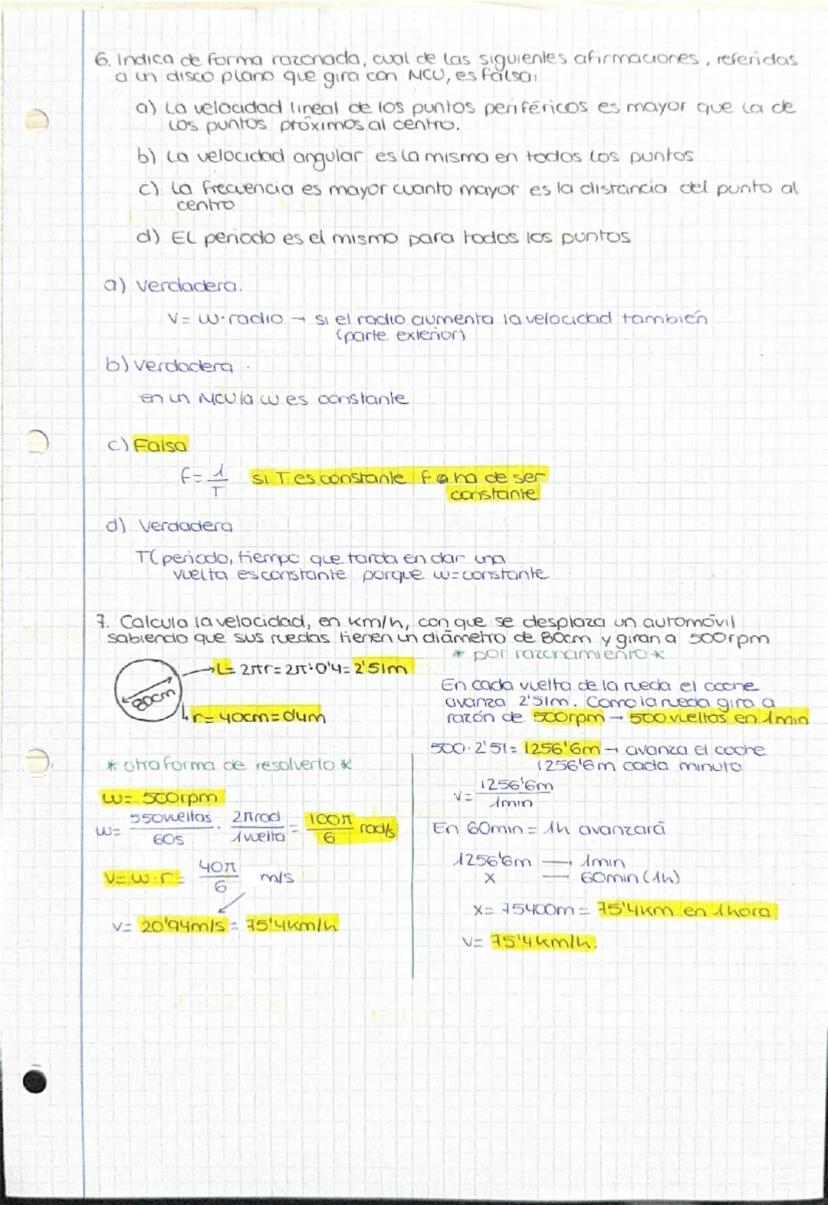 6. Indica de forma razonada, cual de las siguientes afirmaciones, referidas
a un disco plano que gira con MCU, es falsa:
a) La velocidad lineal de los puntos periféricos es mayor que la de
los puntos próximos al centro.
b) La velocidad angular es la misma en todos los puntos
c) La frecuencia es mayor cuanto mayor es la distancia del punto al
centro
d) El periodo es el mismo para todos los puntos
a) Verdadera.
V= ω·radio → si el radio aumenta la velocidad también
(parte exterior)
b) Verdadera.
en un MCU la ω es constante
c) Falsa
f= 1/T si T es constante f ha de ser
constante
d) Verdadera
T(periodo, tiempo que tarda en dar una
vuelta es constante porque ω=constante
7. Calcula la velocidad, en km/h, con que se desplaza un automóvil
sabiendo que sus ruedas tienen un diámetro de 80cm y giran a 500rpm
80cm
→ L= 2πr=2π·0'4=2'51m
r=40cm=0'4m
* otra forma de resolverlo *
ω= 500rpm
ω= 550vueltas/60s · 2πrad/1vuelta = 100π/6 rad/s
V=ω·r= 40π/6 m/s
v= 20'94m/s = 75'4km/h
* por razonamiento *
En cada vuelta de la rueda el coche
avanza 2'51m. Como la rueda gira a
razón de 500rpm → 500vueltas en 1min
500·2'51= 1256'6m → avanza el coche
1256'6m cada minuto
v= 1256'6m/1min
En 60min = 1h avanzará
1256'6m — 1min
x — 60min(1h)
x= 75400m= 75'4km en 1hora
v= 75'4km/h.